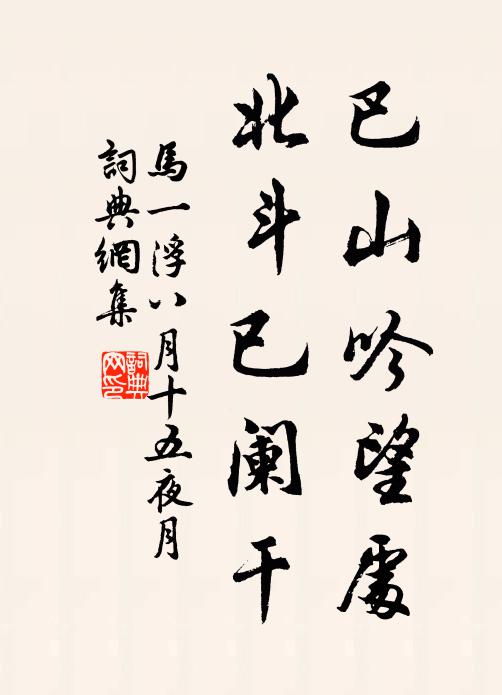 巴山吟望處
北斗已阑干
馬一浮八月十五夜月
詞典網集
詞典网印